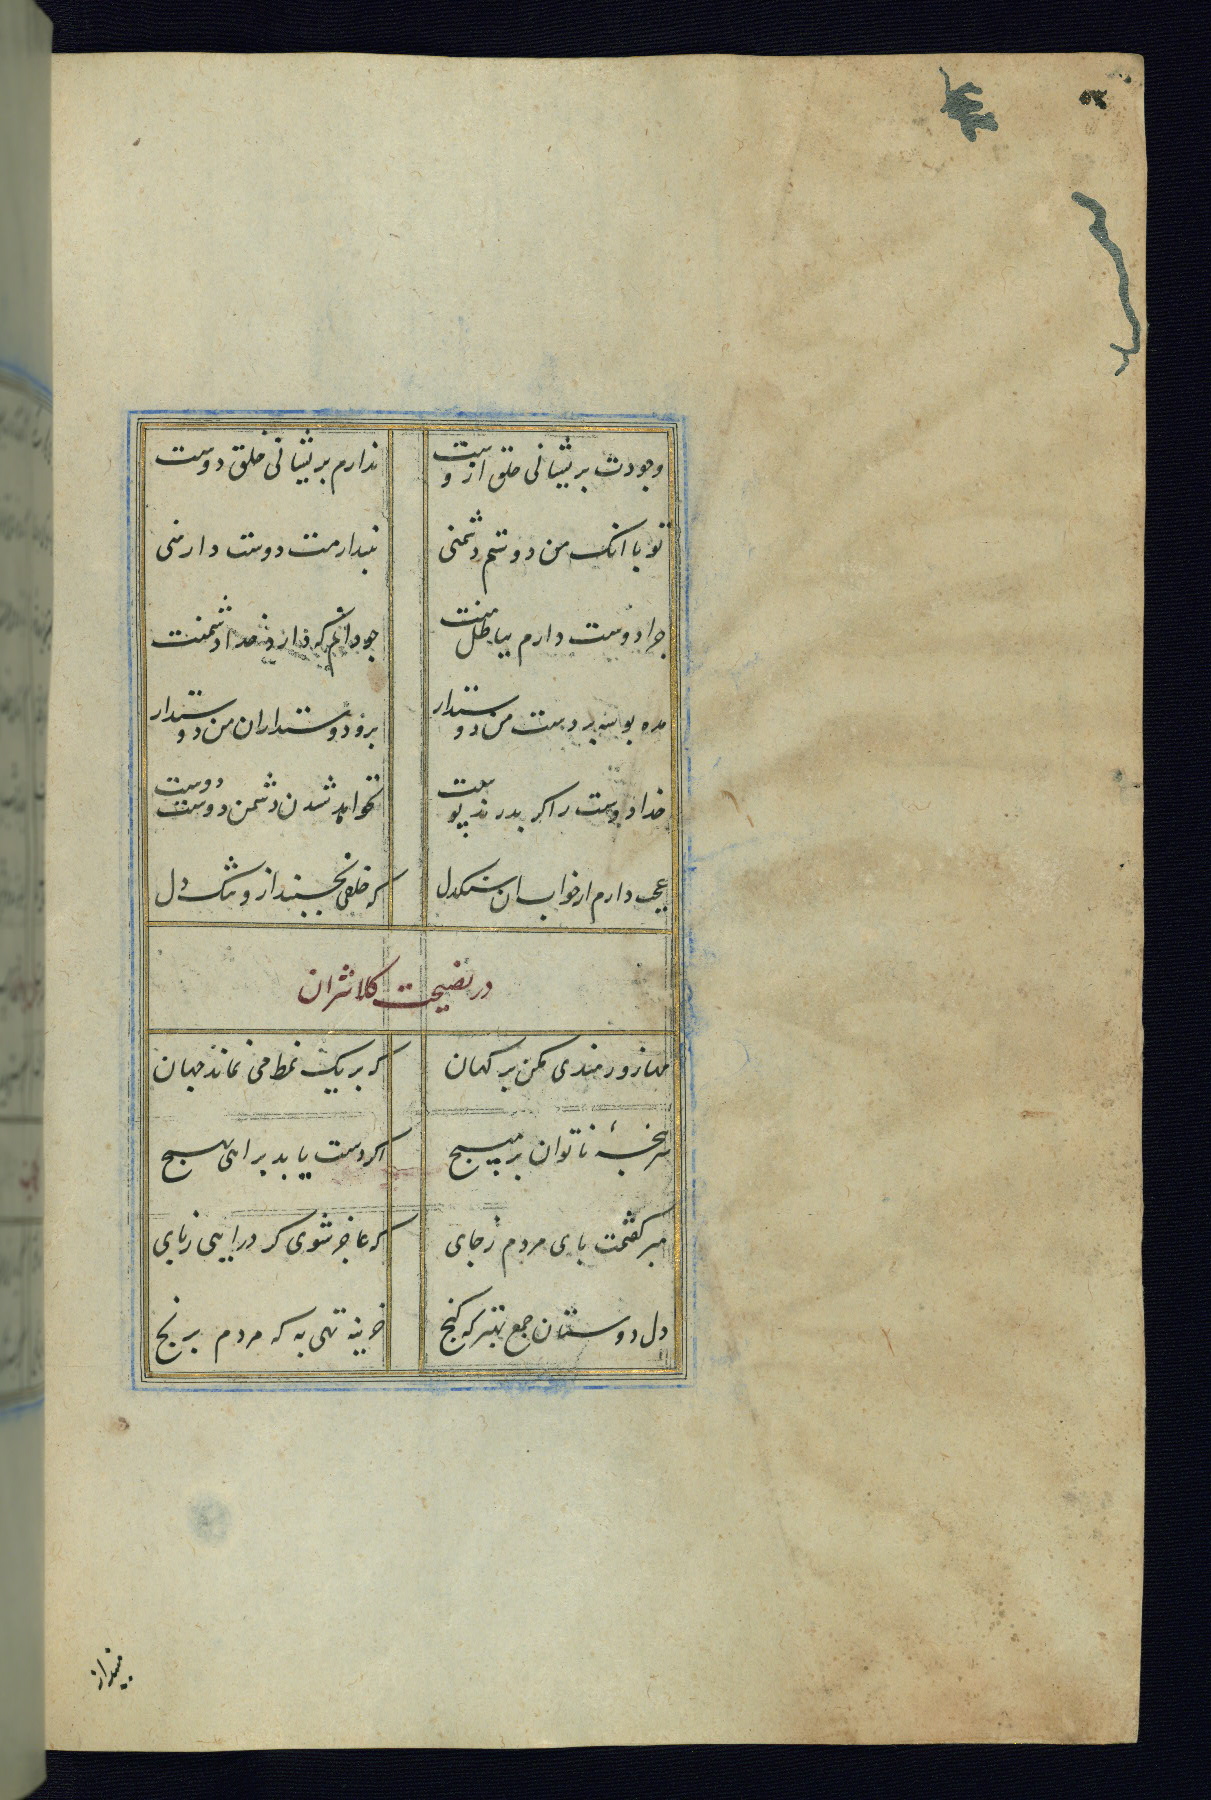 ۵۳
وجودت پریشانی خلق ازوست
ندارم پریشانی خلق دوست
تو با انک من دوستم دشمنی
نپندارمت دوست دار منی
چرا دوست دارم بباطل منت
چو دانم که دارد خدا دشمنت
مده بوسه بر دست من دوستدار
برو دوستداران من دوستدار
خدا دوست را گر بدرند پوست
نخواهد شدن دشمن دوست دوست
عجب دارم از خواب ان سنگدل
که خلقی نخسبند ازو تنگ دل
در نصیحت کلانتران
مها زورمندی مکن بر کهان
که بر یک نمط می نماند جهان
سر پنجهٔ ناتوان بر مپیچ
اگر دست یابد بر ایی بهیچ
مبر گفتمت پای مردم ز جای
که عاجز شوی گر در ایی ز پای
دل دوستان جمع بهتر که گنج
خزینه تهی به که مردم برنج
مینداز